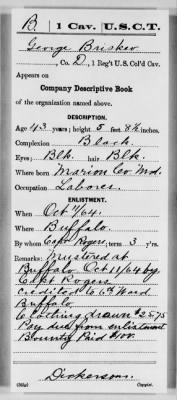 B. | 1 Cav. | U.S.C.T.
George Brisker
, Co. D, 1 Reg't U.S. Col'd Cav.
Appears on
Company Descriptive Book
of the organization named above.
DESCRIPTION.
Age 43 years; height 5 feet 8½ inches.
Complexion Black
Eyes; Blk. hair Blk.
Where born Marion Co. Md.
Occupation Laborer.
ENLISTMENT.
When Oct 1/64.
Where Buffalo.
By whom Capt Rogers; term 3 y'rs.
Remarks: Mustered at
Buffalo Oct 11/64 by
Capt Rogers
credited to 6th Ward
Buffalo
Clothing drawn $25.75
Pay due from enlistment
Bounty Paid $100.
Dickerson.
Copyist.